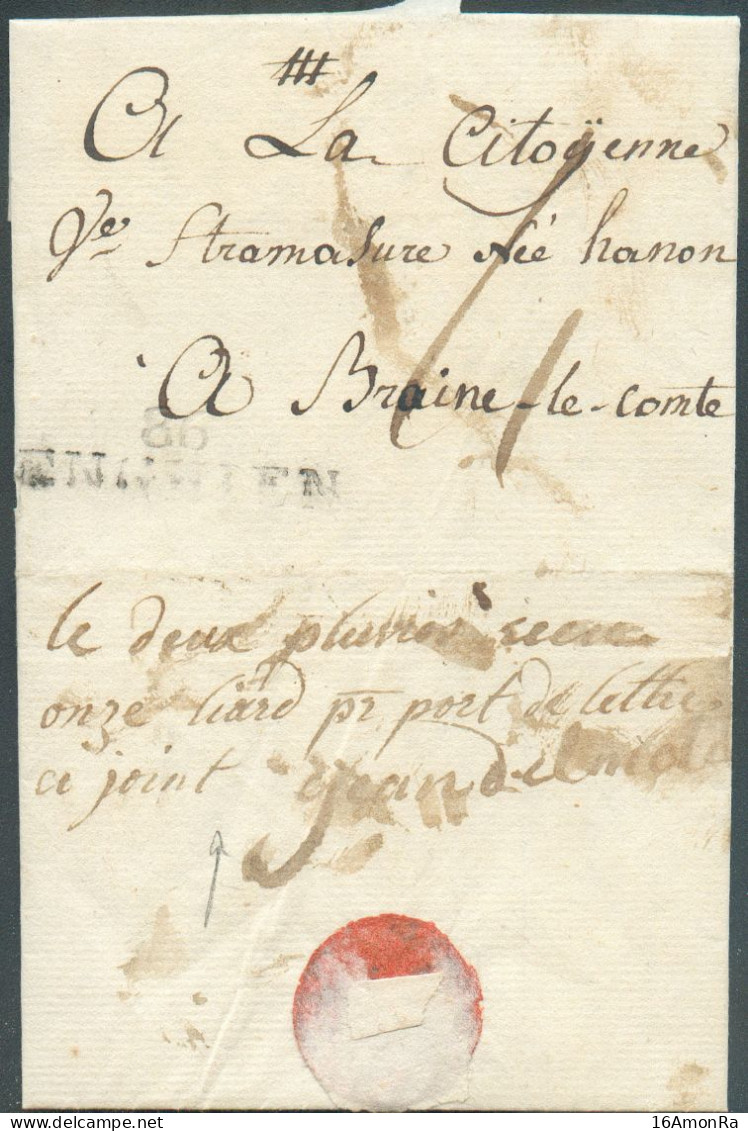 A La Citoÿenne
Vᵉ Stramasure Née hanon
A Braine-le-comte
86
le deux pluvios recu
onze liard pr port de lettre
ci joint jean delmol
16AmonRa